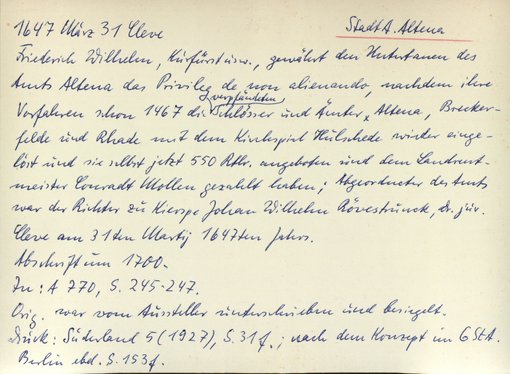 1647 März 31 Cleve StadtA. Altena
Friederich Wilhelm, Kürfürst usw., gewährt den Untertanen des
Amts Altena das Privileg de non alienando, nachdem ihre
Vorfahren schon 1467 die verpfändeten Schlösser und Ämter Altena, Brecker-
felde und Rhade mit dem Kirchspiel Hülschede wieder einge-
löst und sie selbst jetzt 550 Rtlr. angeboten und dem Landrent-
meister Conradt Mollen gezahlt haben; Abgeordneter des Amts
war der Richter zu Kierspe Johan Wilhelm Rövestrunck, Dr. jur.
Cleve am 31ten Martij 1647ten Jahrs.
Abschrift um 1700.
In: A 770, S. 245-247.
Orig. war vom Aussteller unterschrieben und besiegelt.
Druck: Süderland 5 (1927), S. 31 f.; nach dem Konzept im GStA.
Berlin ebd. S. 153 f.